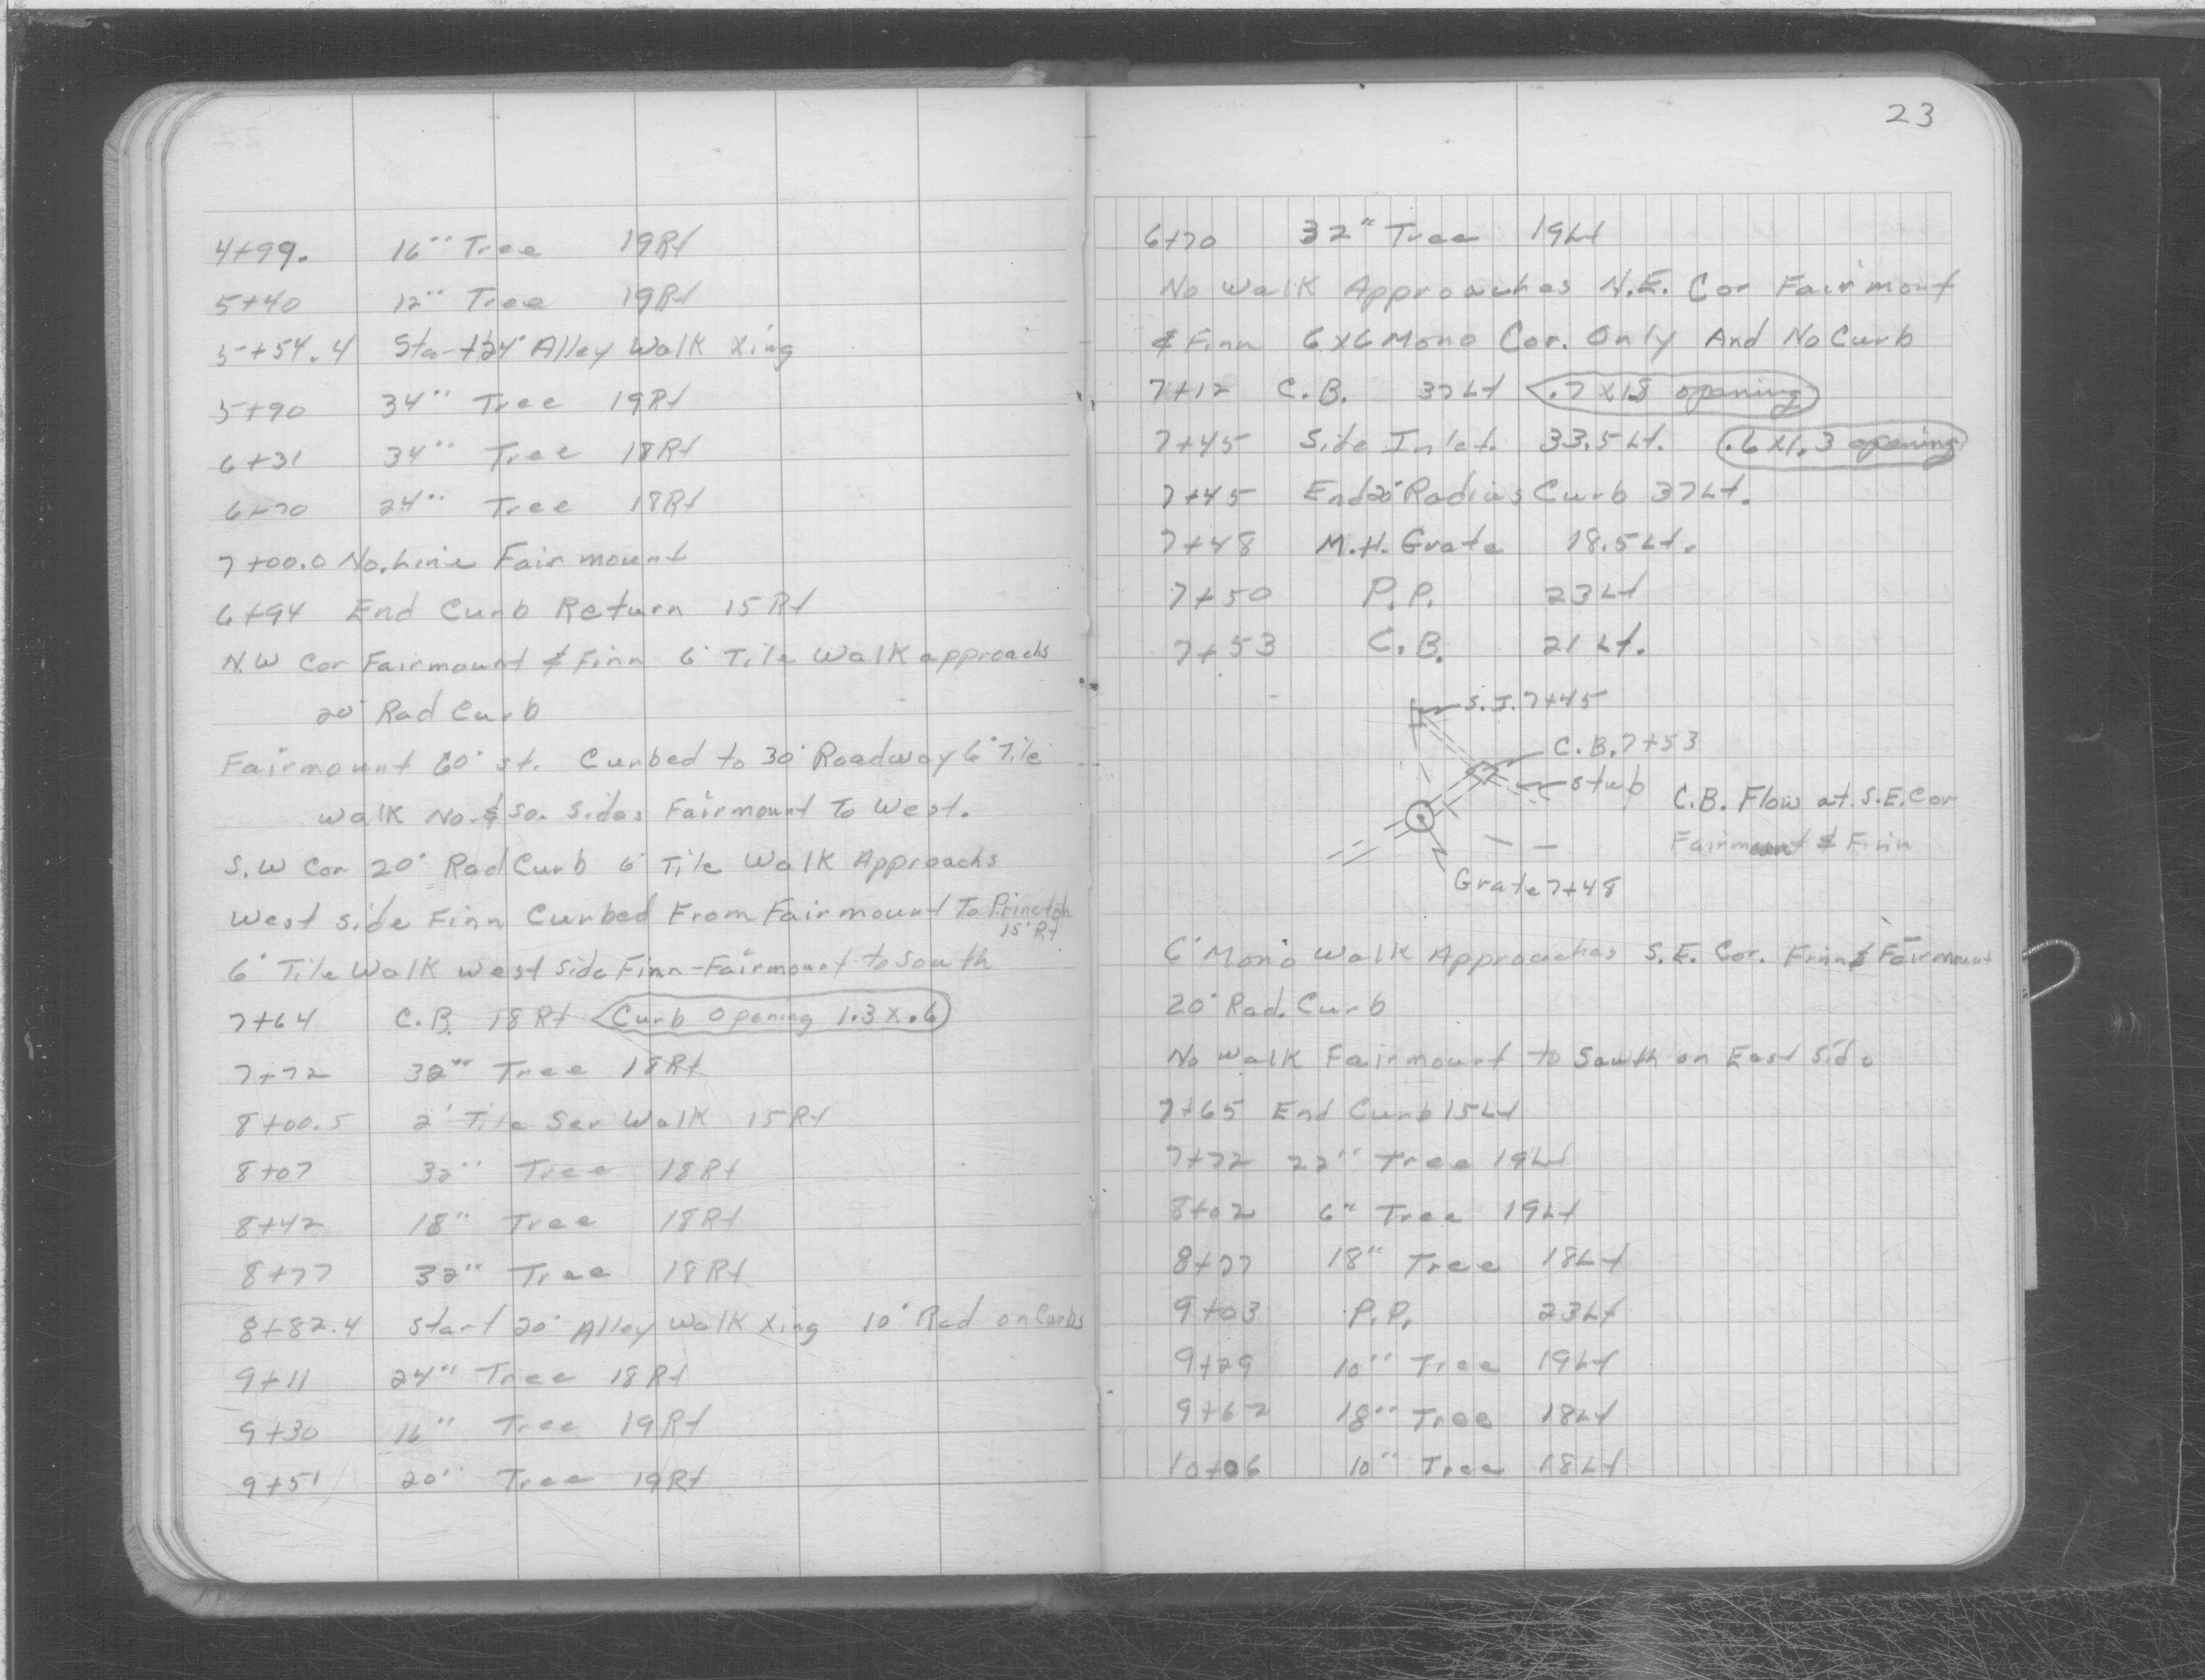 4+99. 16" Tree 19Rt
5+40 12" Tree 19Rt
5+54.4 Start 24' Alley Walk Xing
5+90 34" Tree 19Rt
6+31 34" Tree 18Rt
6+70 24" Tree 18Rt
7+00.0 No. Line Fairmount
6+94 End Curb Return 15 Rt
N.W Cor Fairmount & Finn 6' Tile Walk approachs
20' Rad Curb
Fairmount 60' st. Curbed to 30' Roadway 6' Tile
walk No. & So. Sides Fairmount To West.
S.W Cor 20' Rad Curb 6' Tile Walk Approachs
West side Finn Curbed From Fairmount To Princeton
15' Rt
6' Tile Walk west Side Finn-Fairmount to South
7+64 C.B. 18 Rt Curb Opening 1.3 X .6
7+72 32" Tree 18Rt
8+00.5 2' Tile Ser Walk 15Rt
8+07 32" Tree 18Rt
8+42 18" Tree 18Rt
8+77 32" Tree 18Rt
8+82.4 Start 20' Alley Walk Xing 10' Rad on Curbs
9+11 24" Tree 18Rt
9+30 16" Tree 19Rt
9+51 20" Tree 19Rt
23
6+70 32" Tree 19Lt
No Walk Approaches N.E. Cor Fairmount
& Finn 6X6 Mono Cor. Only And No Curb
7+12 C.B. 37Lt .7 X 1.8 opening
7+45 Side Inlet. 33.5Lt. .6X1.3 opening
7+45 End 20' Radius Curb 37Lt.
7+48 M.H. Grate 18.5Lt.
7+50 P.P. 23Lt
7+53 C.B. 21 Lt.
S.I. 7+45
C.B. 7+53
stub
C.B. Flow at S.E. Cor
Fairmount & Finn
Grate 7+48
6' Mono Walk Approaches S.E. Cor. Finn & Fairmount
20' Rad. Curb
No walk Fairmount to South on East Side
7+65 End Curb 15Lt
7+72 22" Tree 19Lt
8+02 6" Tree 19Lt
8+77 18" Tree 18Lt
9+03 P.P. 23Lt
9+29 10" Tree 19Lt
9+62 18" Tree 18Lt
10+06 10" Tree 18Lt